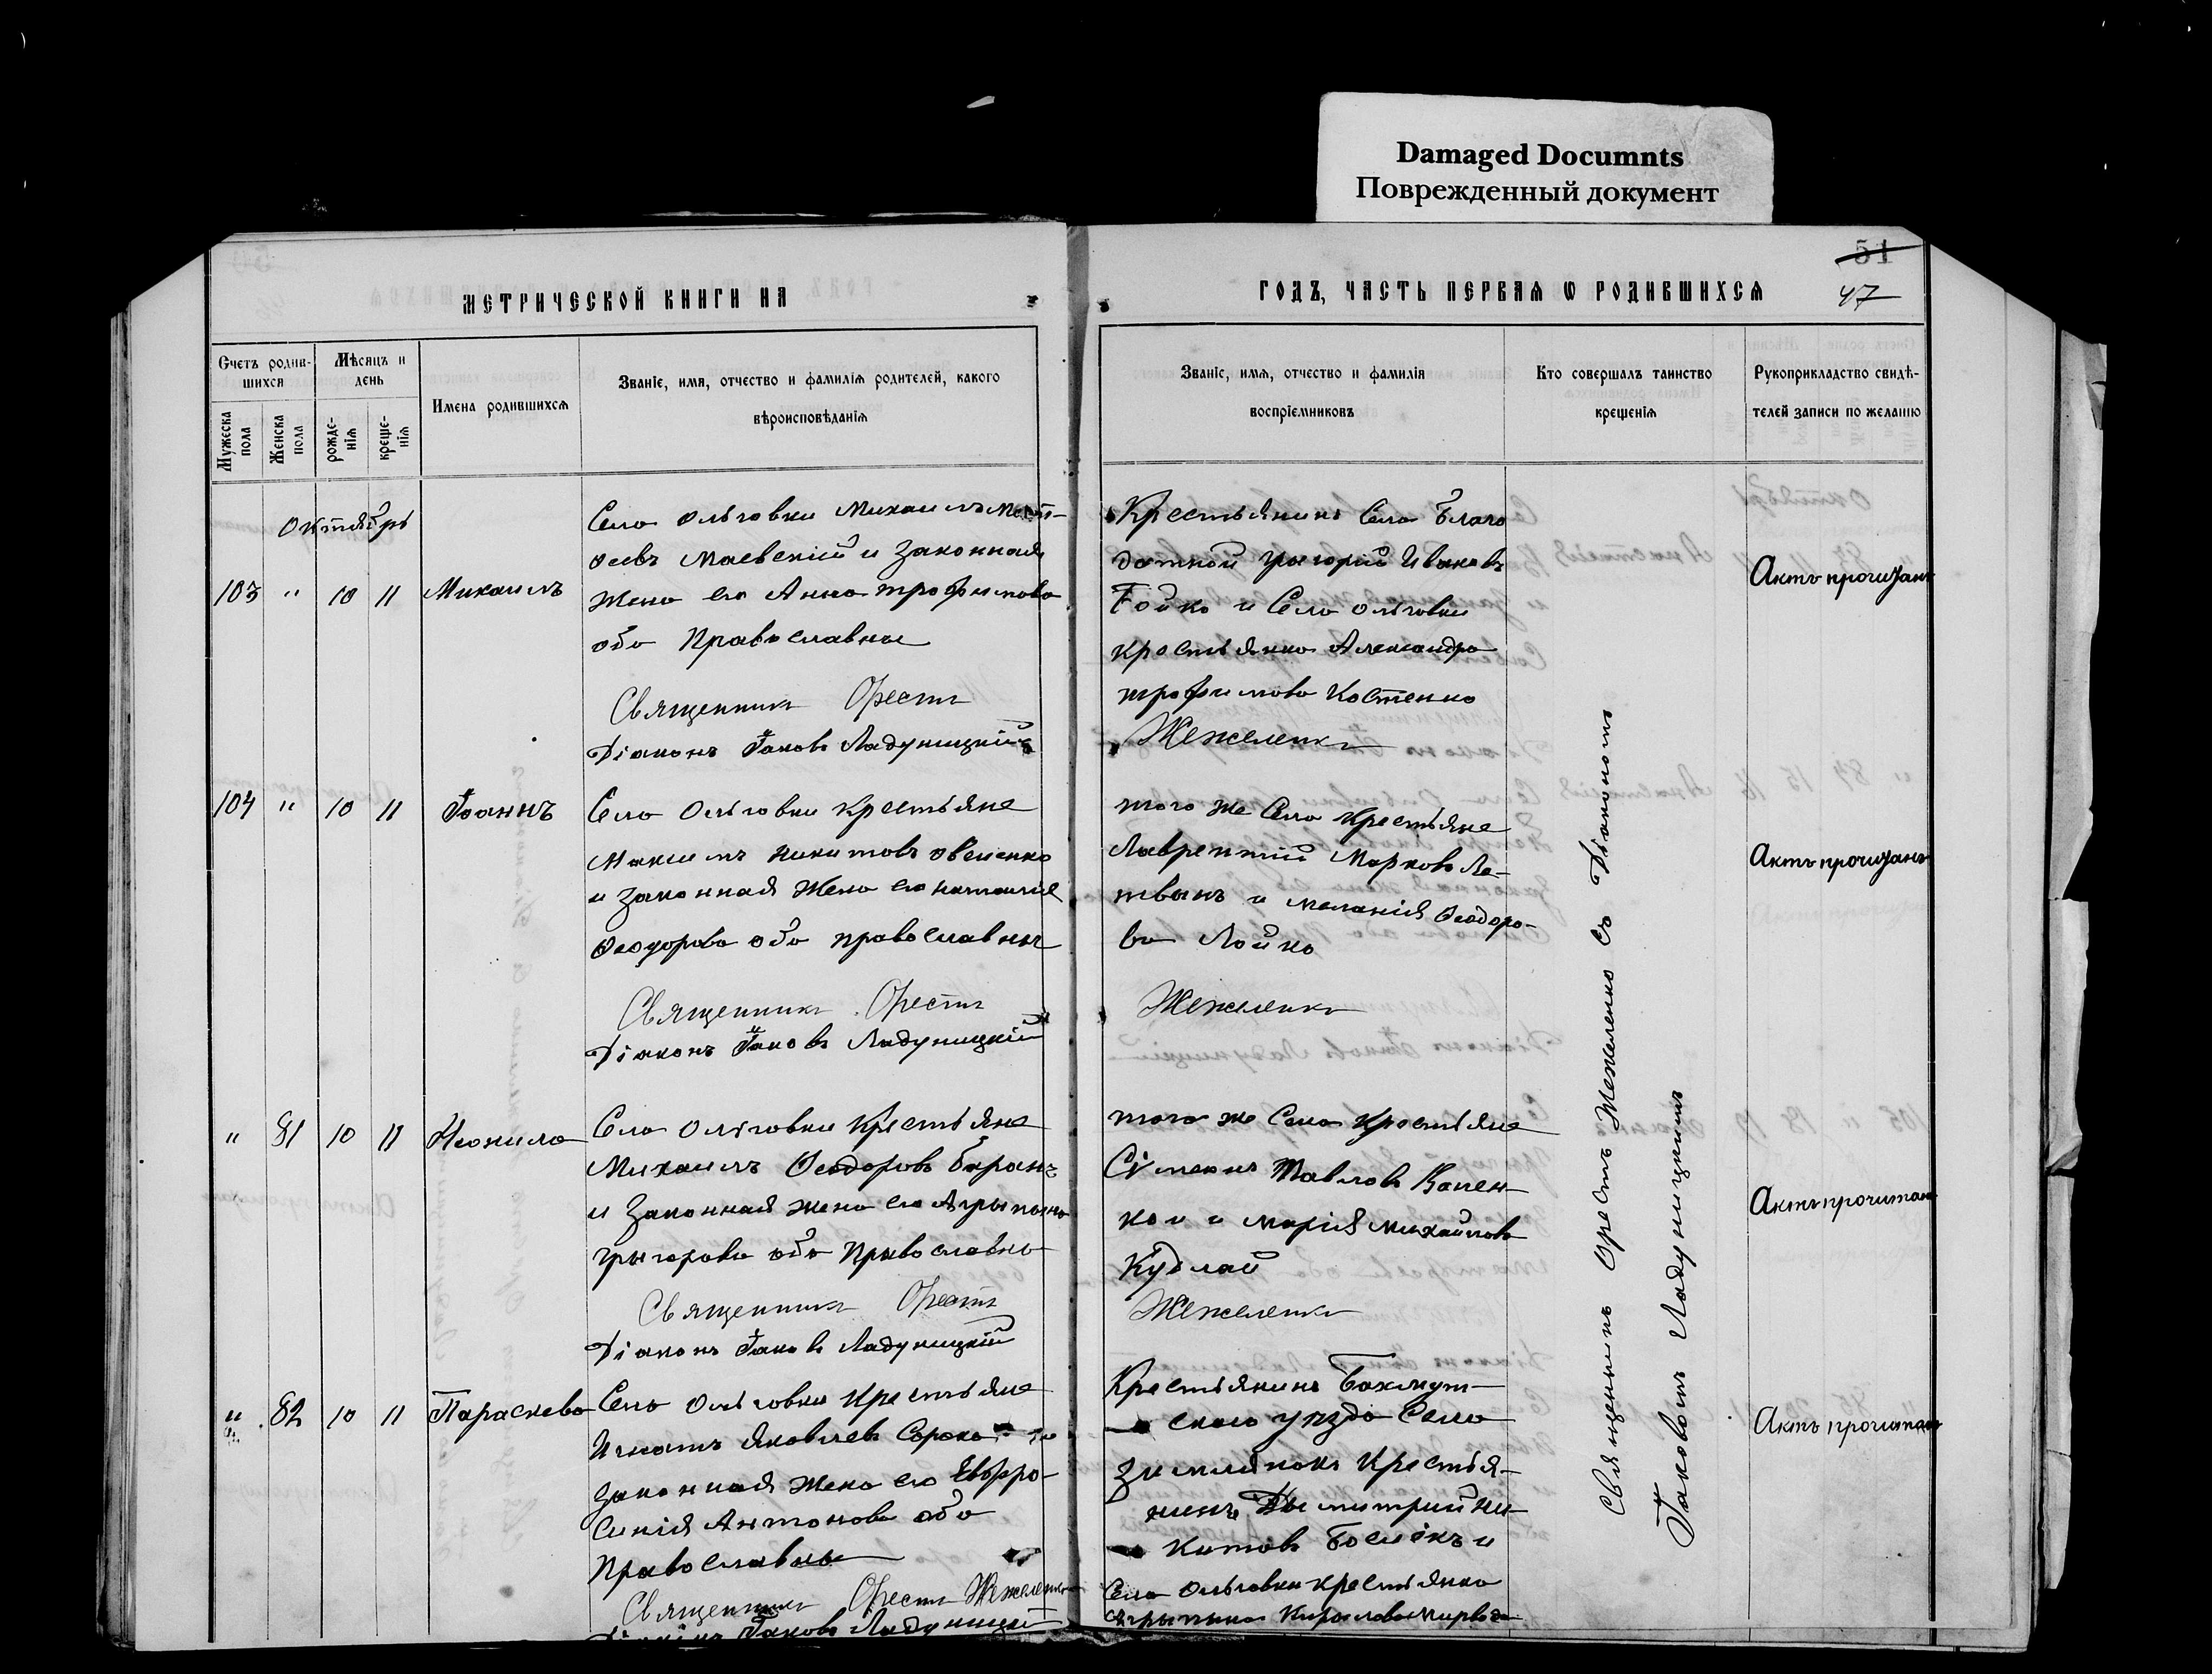 Damaged Documnts
Поврежденный документ
51
47
МЕТРИЧЕСКОЙ КНИГИ НА
ГОДЪ, ЧАСТЬ ПЕРВАЯ Ѡ РОДИВШИХСЯ
Счетъ родив-
шихся
Мужеска
пола
Женска
пола
Мѣсяцъ и
день
рожде-
нія
креще-
нія
Имена родившихся
Званіе, имя, отчество и фамилія родителей, какого
вѣроисповѣданія
Званіе, имя, отчество и фамилія
воспріемниковъ
Кто совершалъ таинство
крещенія
Рукоприкладство свидѣ-
телей записи по желанію
Октябрь
103 " 10 11 Михаилъ
Села Ольговки Михаилъ
Маевскій и Законная
Жена его Анна Трофимова
оба Православны
Священникъ Орестъ
Діаконъ Іаковъ Ладуницкій
Крестьянинъ Села Благо
датной Григорій Ивановъ
Бойко и Села Ольговки
крестьянка Александра
трофимова Костенко
Жежеленко
Актъ прочитанъ
104 " 10 11 Іоаннъ
Села Ольговки Крестьяне
Максимъ Никитовъ Овсиенко
и Законная Жена его Наталия
Ѳеодорова оба православны
Священникъ Орестъ
Діаконъ Іаковъ Ладуницкій
того же Села Крестьяне
Лаврентій Марковъ Ле-
тванъ и Меланія Ѳеодоро-
ва Лойко
Жежеленко
Актъ прочитанъ
" 81 10 11 Неонила
Села Ольговки Крестьяне
Михаилъ Ѳеодоровъ Баранъ
и Законная жена его Агрыпына
Грыгорова оба Православны
Священникъ Орестъ
Діаконъ Іаковъ Ладуницкій
того же Села Крестьяне
Сѵмеонъ Павловъ
и Марія Михайлова
Кудлай
Жежеленко
Актъ прочитанъ
" 82 10 11 Параскева
Села Ольговки Крестьяне
Игнатъ Яковлевъ Сорока
Законная Жена его Евфро-
синія Антонова оба
Православны
Священникъ Орестъ Жежеленко
Діаконъ Іаковъ Ладуницкій
Крестьянинъ Бахмут-
скаго уѣзда Села
Крестья-
нинъ Дымитрий Ни-
китовъ и
Села Ольговки крестьянка
Агрыпына Кирилова
Актъ прочитанъ
Священникъ Орестъ Жежеленко съ Діакономъ
Іаковомъ Ладуницкимъ